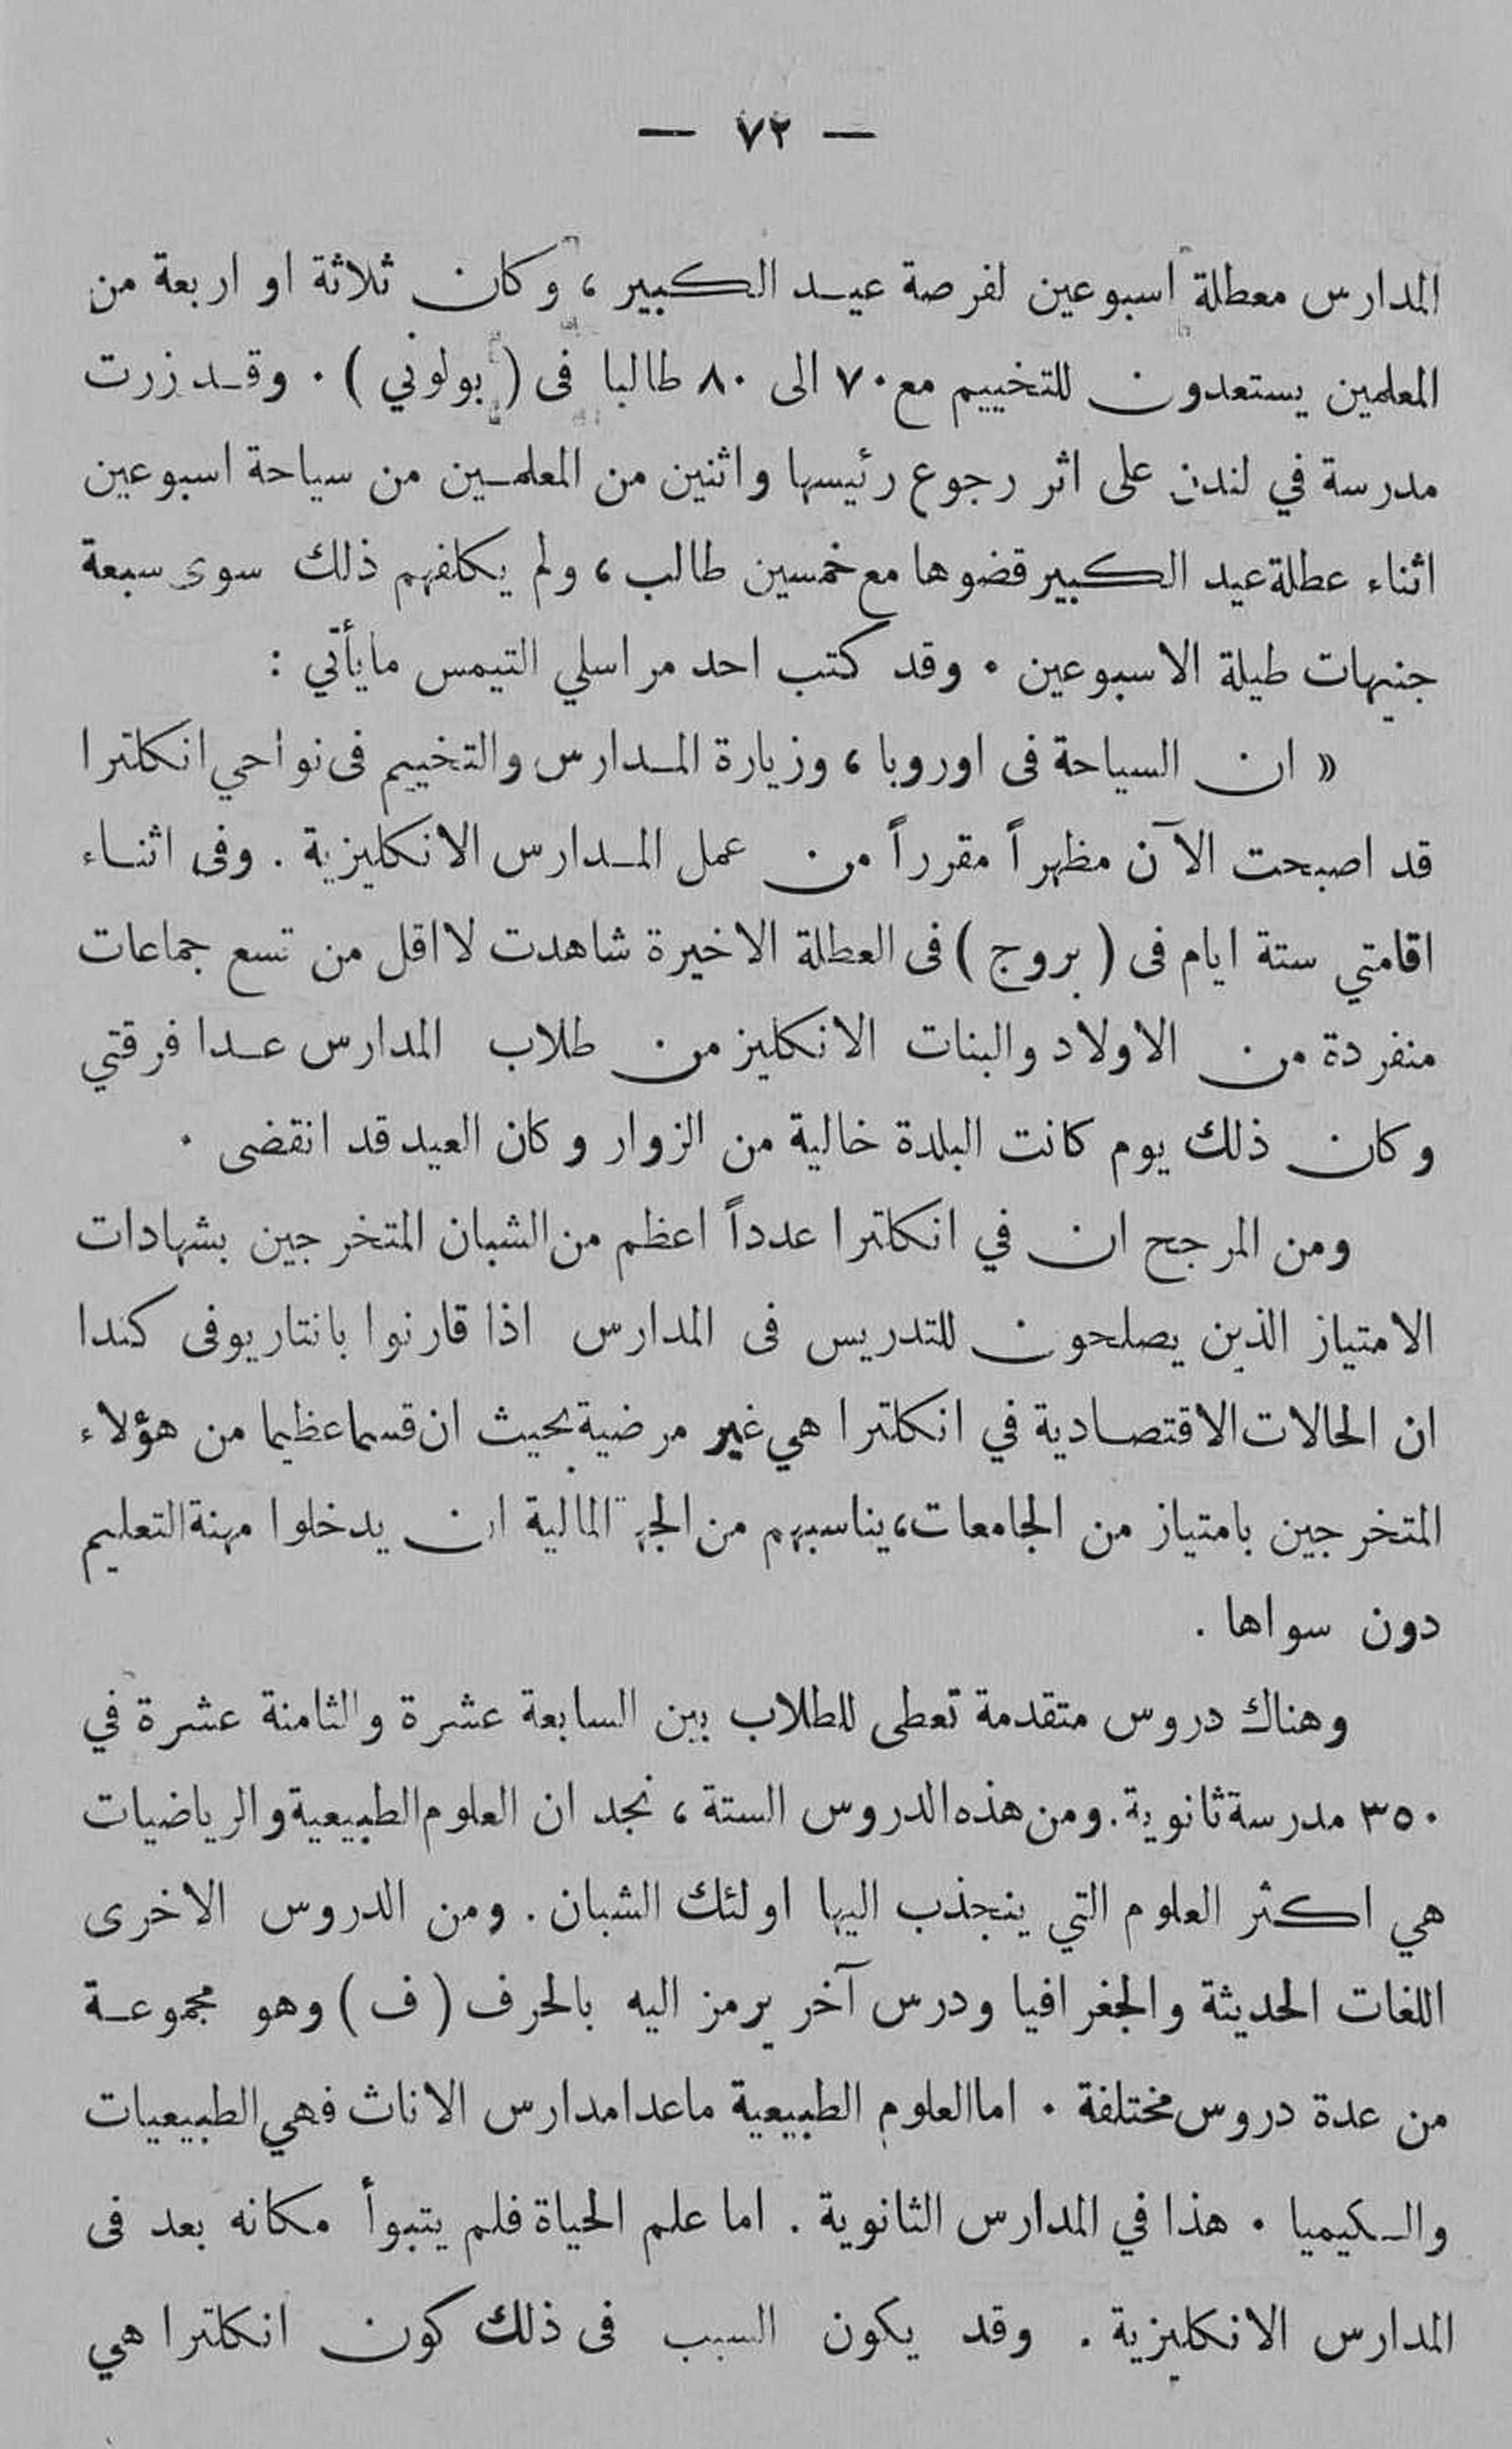 — ٧٢ —
المدارس معطلة اسبوعين لفرصة عيد الكبير ، وكان ثلاثة او اربعة من
المعلمين يستعدون للتخييم مع ٧٠ الى ٨٠ طالبا فى ( بولوني ) . وقد زرت
مدرسة في لندن على اثر رجوع رئيسها واثنين من المعلمين من سياحة اسبوعين
اثناء عطلة عيد الكبير قضوها مع خمسين طالب ، ولم يكلفهم ذلك سوى سبعة
جنيهات طيلة الاسبوعين . وقد كتب احد مراسلي التيمس مايأتي :
« ان السياحة فى اوروبا ، وزيارة المدارس والتخييم فى نواحي انكلترا
قد اصبحت الآن مظهراً مقرراً من عمل المدارس الانكليزية . وفى اثناء
اقامتي ستة ايام فى ( بروج ) فى العطلة الاخيرة شاهدت لا اقل من تسع جماعات
منفردة من الاولاد والبنات الانكليز من طلاب المدارس عدا فرقتي
وكان ذلك يوم كانت البلدة خالية من الزوار وكان العيد قد انقضى .
ومن المرجح ان في انكلترا عدداً اعظم من الشبان المتخرجين بشهادات
الامتياز الذين يصلحون للتدريس فى المدارس اذا قارنوا بانتاريو فى كندا
ان الحالات الاقتصادية في انكلترا هي غير مرضية بحيث ان قسما عظيما من هؤلاء
المتخرجين بامتياز من الجامعات ، يناسبهم من الجهة المالية ان يدخلوا مهنة التعليم
دون سواها .
وهناك دروس متقدمة تعطى للطلاب بين السابعة عشرة والثامنة عشرة في
٣٥٠ مدرسة ثانوية . ومن هذه الدروس الستة ، نجد ان العلوم الطبيعية والرياضيات
هي اكثر العلوم التي ينجذب اليها اولئك الشبان . ومن الدروس الاخرى
اللغات الحديثة والجغرافيا ودرس آخر يرمز اليه بالحرف ( ف ) وهو مجموعة
من عدة دروس مختلفة . اما العلوم الطبيعية ماعدا مدارس الاناث فهي الطبيعيات
والكيميا . هذا في المدارس الثانوية . اما علم الحياة فلم يتبوأ مكانه بعد فى
المدارس الانكليزية . وقد يكون السبب فى ذلك كون انكلترا هي